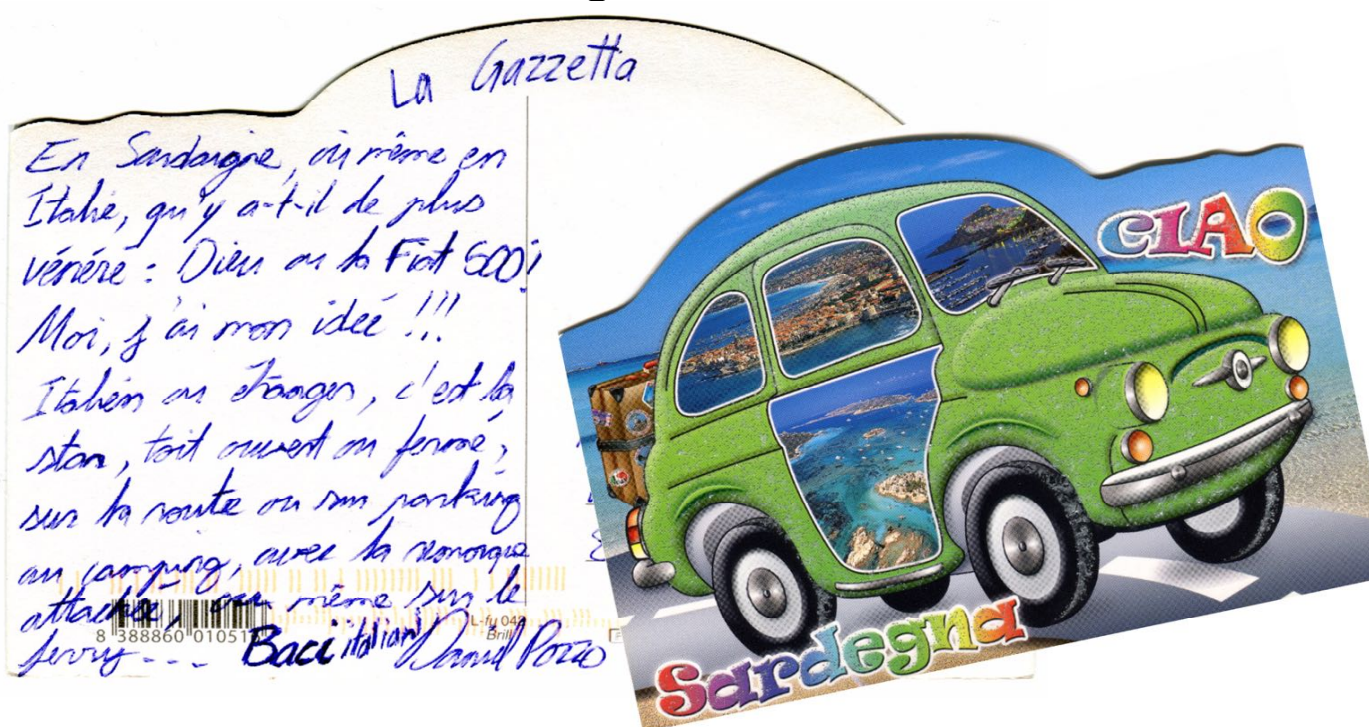 La Gazzetta
En Sardaigne, ou même en
Italie, qu'y a-t-il de plus
vénéré : Dieu ou la Fiat 500?
Moi, j'ai mon idée !!!
Italien ou étranger, c'est la
star, toit ouvert ou fermé,
sur la route ou sur parking
au camping, avec la remorque
attachée, ou même sur le
ferry...
Baci italiani
8 388860 01051
Brill
CIAO
Sardegna